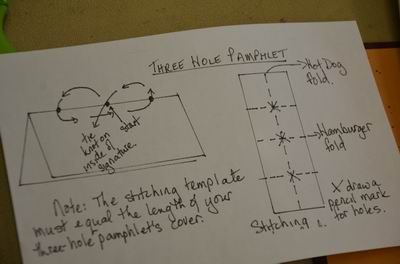 THREE HOLE PAMPHLET
Hot Dog
fold.
start
tie
knot on
inside of
signature.
Hamburger
fold
Note: The stitching template
must equal the length of your
three-hole pamphlet's cover.
Stitching
X draw a
pencil mark
for holes.